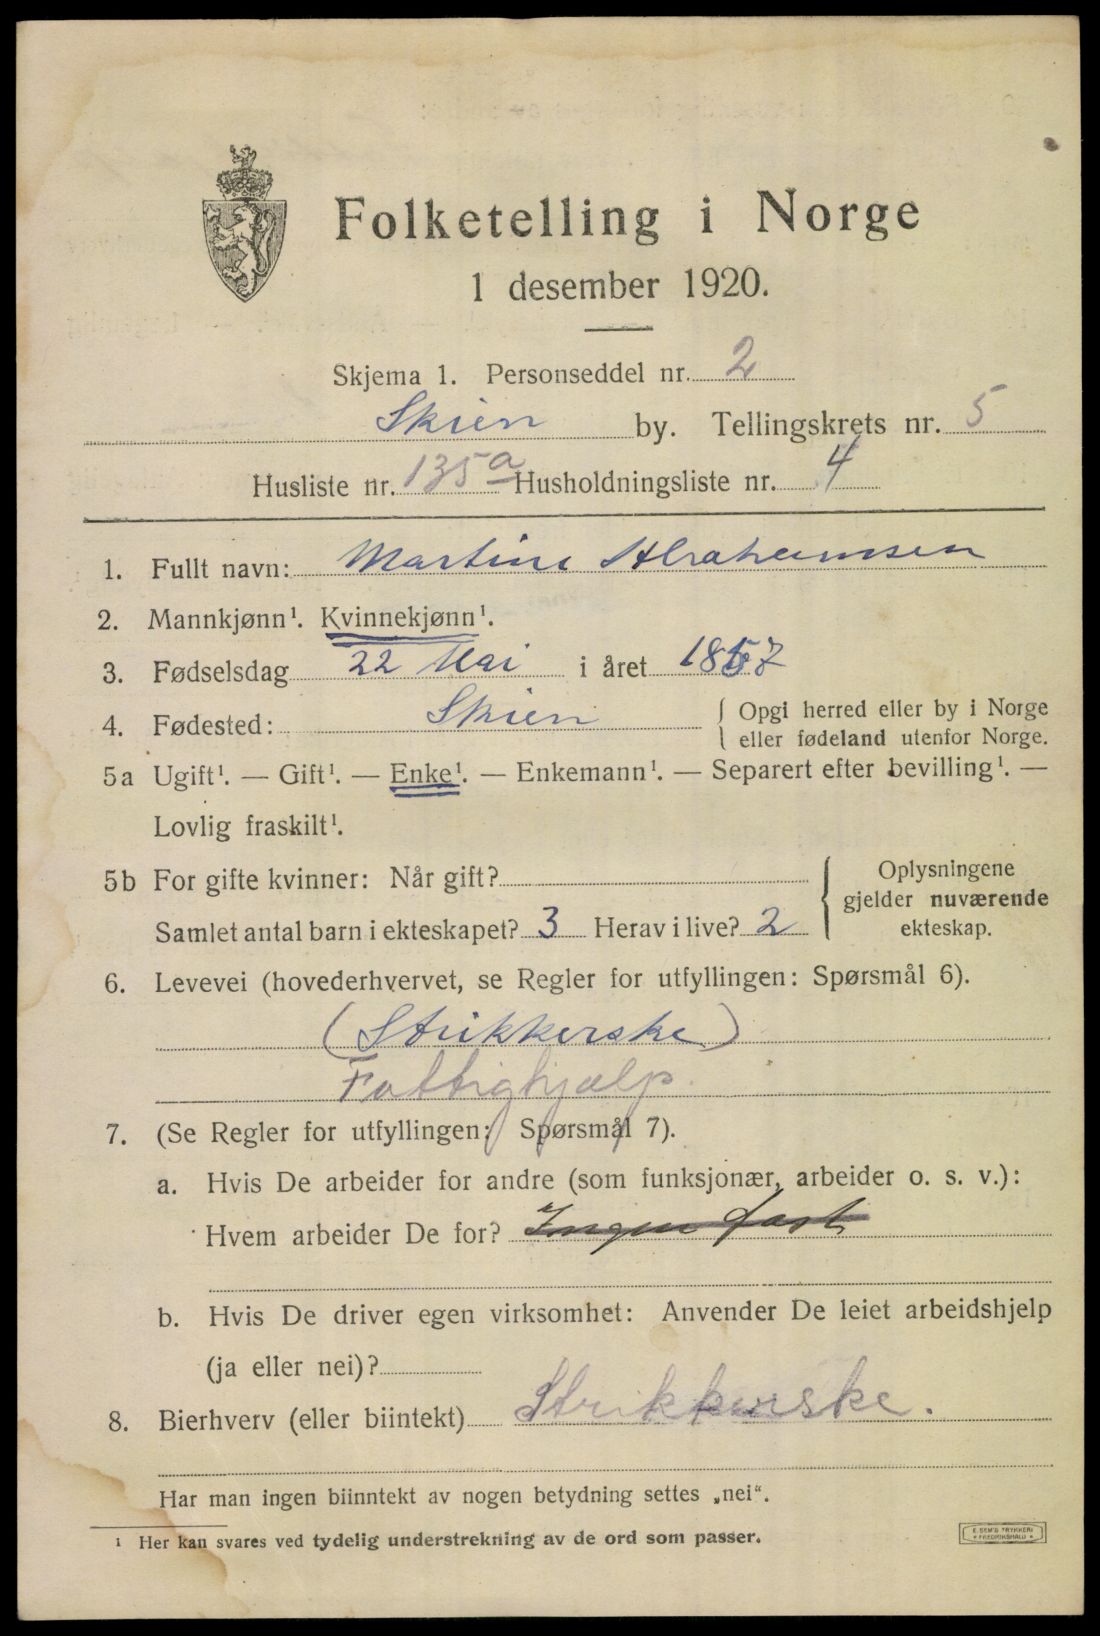 Folketelling i Norge
1 desember 1920.
Skjema 1. Personseddel nr. 2
Skien by. Tellingskrets nr. 5
Husliste nr. 135a Husholdningsliste nr. 4
1. Fullt navn: Martine Abrahamsen
2. Mannkjønn¹. Kvinnekjønn¹.
3. Fødselsdag 22 Mai i året 1857
4. Fødested: Skien { Opgi herred eller by i Norge
eller fødeland utenfor Norge.
5a Ugift¹. — Gift¹. — Enke¹. — Enkemann¹. — Separert efter bevilling¹. —
Lovlig fraskilt¹.
5b For gifte kvinner: Når gift?
Samlet antal barn i ekteskapet? 3 Herav i live? 2
{ Oplysningene
gjelder nuværende
ekteskap.
6. Levevei (hovederhvervet, se Regler for utfyllingen: Spørsmål 6).
(Strikkerske)
Fattighjælp.
7. (Se Regler for utfyllingen: Spørsmål 7).
a. Hvis De arbeider for andre (som funksjonær, arbeider o. s. v.):
Hvem arbeider De for? Ingen fast
b. Hvis De driver egen virksomhet: Anvender De leiet arbeidshjelp
(ja eller nei)?
8. Bierhverv (eller biintekt) Strikkerske.
Har man ingen biinntekt av nogen betydning settes „nei“.
¹ Her kan svares ved tydelig understrekning av de ord som passer.
E. SEM'S TRYKKERI
FREDRIKSHALD